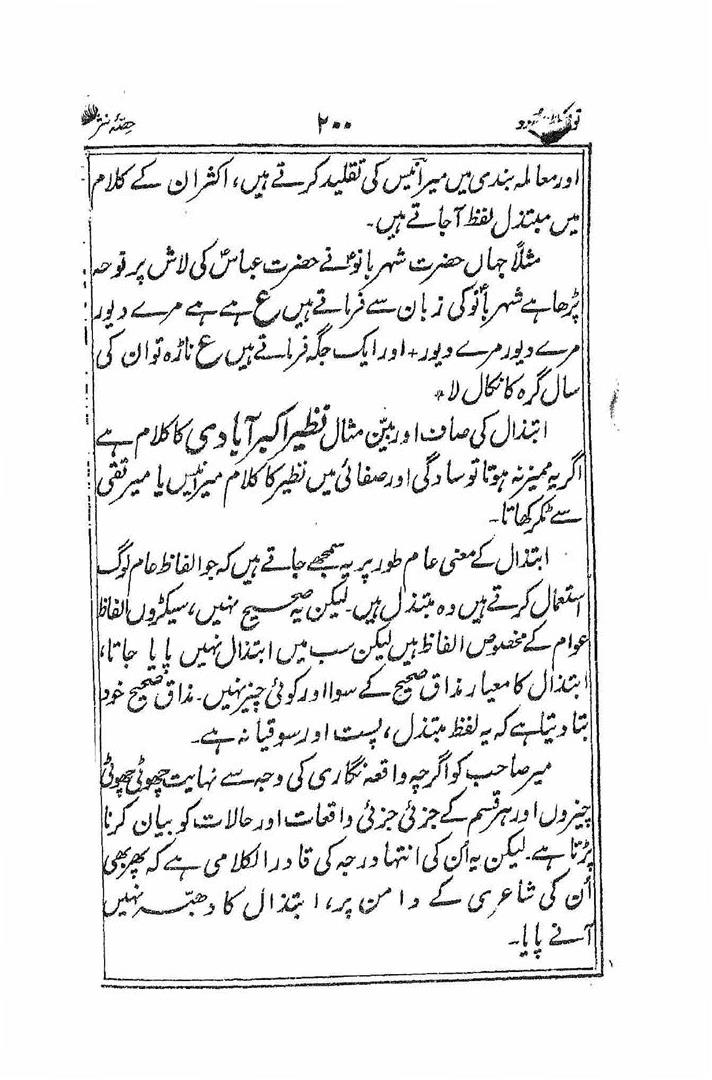 ۲۰۰ حصۂ نثر
اور معاملہ بندی میں میر انیس کی تقلید کرتے ہیں، اکثر ان کے کلام
میں مبتذل لفظ آجاتے ہیں۔
مثلاً جہاں حضرت شہر بانوؑ نے حضرت عباسؑ کی لاش پر نوحہ
پڑھا ہے شہر بانو کی زبان سے فرماتے ہیں ع ہے ہے مرے دیور
مرے دیور مرے دیور + اور ایک جگہ فرماتے ہیں ع ناڑہ تو ان کی
سال گرہ کا نکال لا *
ابتذال کی صاف اور بیّن مثال نظیر اکبر آبادی کا کلام ہے
اگر یہ ممیز نہ ہوتا تو سادگی اور صفائی میں نظیر کا کلام میر انیس یا میر تقی
سے ٹکر کھاتا۔
ابتذال کے معنی عام طور پر یہ سمجھے جاتے ہیں کہ جو الفاظ عام لوگ
استعمال کرتے ہیں وہ مبتذل ہیں۔ لیکن یہ صحیح نہیں، سیکڑوں الفاظ
عوام کے مخصوص الفاظ ہیں لیکن سب میں ابتذال نہیں پایا جاتا،
ابتذال کا معیار مذاق صحیح کے سوا اور کوئی چیز نہیں۔ مذاق صحیح خود
بتا دیتا ہے کہ یہ لفظ مبتذل، پست اور سوقیانہ ہے۔
میر صاحب کو اگرچہ واقعہ نگاری کی وجہ سے نہایت چھوٹی چھوٹی
چیزوں اور ہر قسم کے جزئی جزئی واقعات اور حالات کو بیان کرنا
پڑتا ہے۔ لیکن یہ اُن کی انتہا درجہ کی قادر الکلامی ہے کہ پھر بھی
اُن کی شاعری کے دامن پر، ابتذال کا دھبّہ نہیں
آنے پایا۔